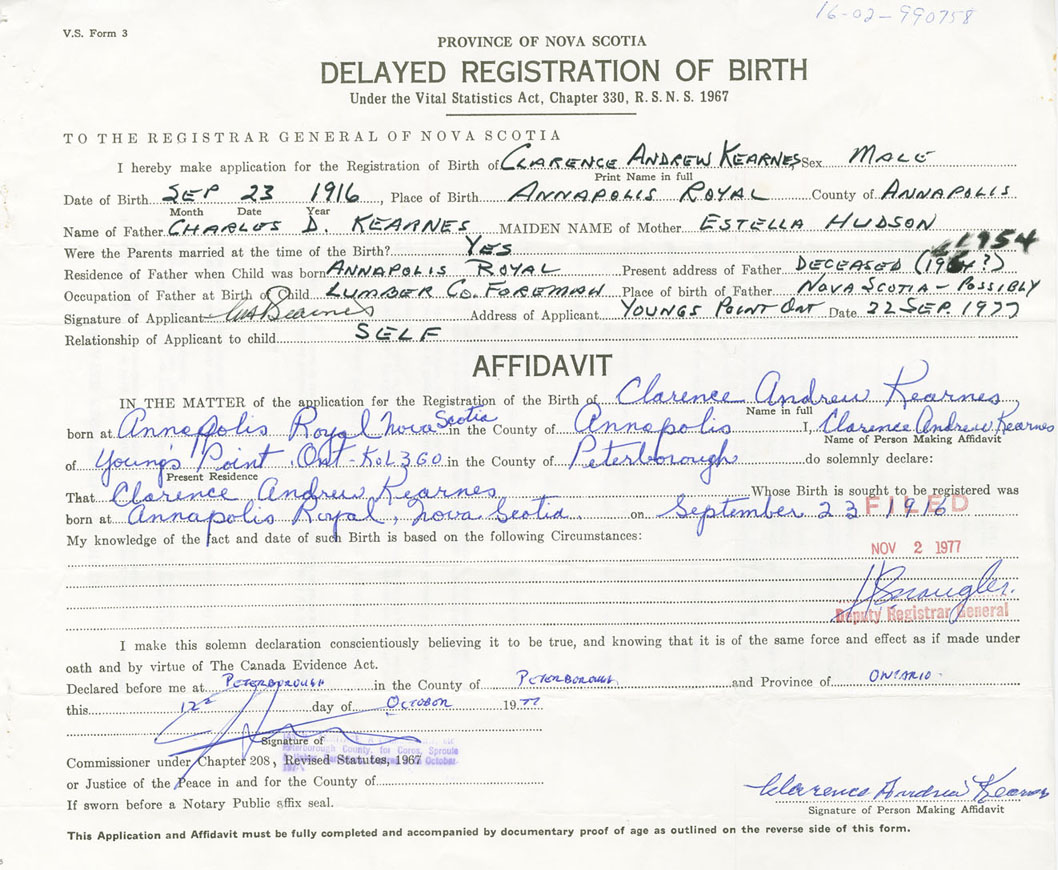 16-02-990758
V.S. Form 3
PROVINCE OF NOVA SCOTIA
DELAYED REGISTRATION OF BIRTH
Under the Vital Statistics Act, Chapter 330, R. S. N. S. 1967
TO THE REGISTRAR GENERAL OF NOVA SCOTIA
I hereby make application for the Registration of Birth of CLARENCE ANDREW KEARNES Sex MALE
Print Name in full
Date of Birth SEP 23 1916, Place of Birth ANNAPOLIS ROYAL County of ANNAPOLIS
Month Date Year
Name of Father CHARLES D. KEARNES MAIDEN NAME of Mother ESTELLA HUDSON
Were the Parents married at the time of the Birth? YES 1954
Residence of Father when Child was born ANNAPOLIS ROYAL Present address of Father DECEASED (19 ?)
Occupation of Father at Birth of Child LUMBER CO. FOREMAN Place of birth of Father NOVA SCOTIA - POSSIBLY
Signature of Applicant Address of Applicant YOUNGS POINT ONT Date 22 SEP. 1977
Relationship of Applicant to child SELF
AFFIDAVIT
IN THE MATTER of the application for the Registration of the Birth of Clarence Andrew Kearnes
Name in full
born at Annapolis Royal Nova Scotia in the County of Annapolis I, Clarence Andrew Kearnes
Name of Person Making Affidavit
of Young's Point, Ont - K0L3G0 in the County of Peterborough do solemnly declare:
Present Residence
That Clarence Andrew Kearnes Whose Birth is sought to be registered was
born at Annapolis Royal, Nova Scotia. on September 23 1916
FILED
My knowledge of the fact and date of such Birth is based on the following Circumstances:
NOV 2 1977
Deputy Registrar General
I make this solemn declaration conscientiously believing it to be true, and knowing that it is of the same force and effect as if made under
oath and by virtue of The Canada Evidence Act.
Declared before me at PETERBOROUGH in the County of PETERBOROUGH and Province of ONTARIO.
this 12th day of OCTOBER 1977
Signature of
Peterborough County, for Corns, Sproule
Commissioner under Chapter 208, Revised Statutes, 1967
October
or Justice of the Peace in and for the County of
If sworn before a Notary Public affix seal.
Clarence Andrew Kearnes
Signature of Person Making Affidavit
This Application and Affidavit must be fully completed and accompanied by documentary proof of age as outlined on the reverse side of this form.